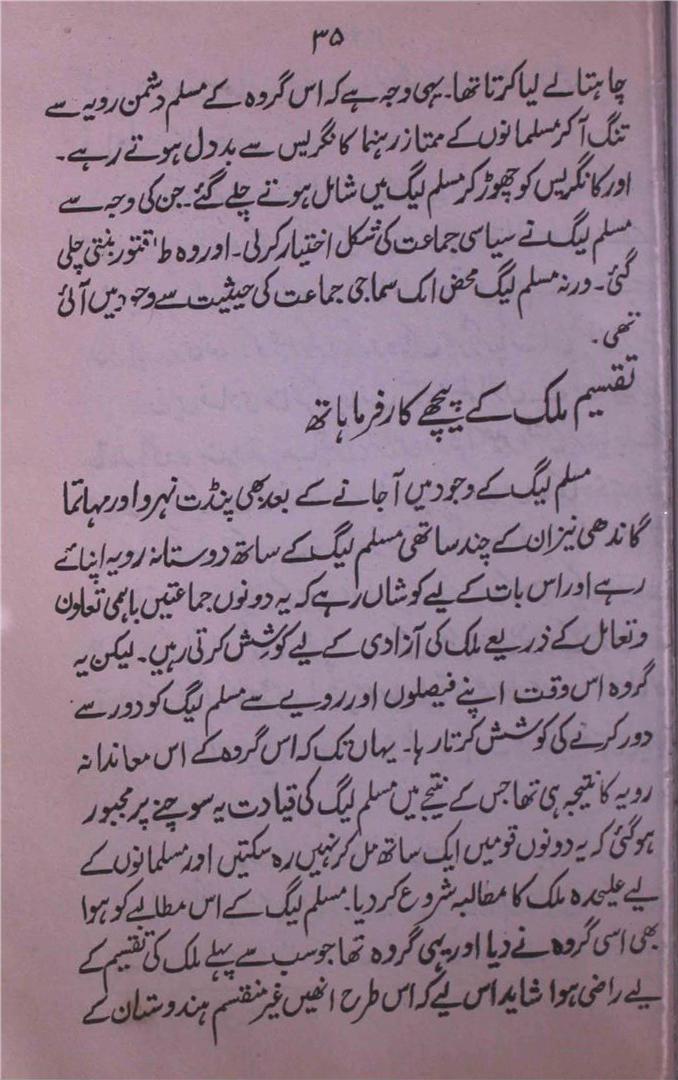 ۳۵
چاہتا لے لیا کرتا تھا۔ یہی وجہ ہے کہ اس گروہ کے مسلم دشمن رویہ سے
تنگ آ کر مسلمانوں کے ممتاز رہنما کانگریس سے بد دل ہوتے رہے۔
اور کانگریس کو چھوڑ کر مسلم لیگ میں شامل ہوتے چلے گئے۔ جن کی وجہ سے
مسلم لیگ نے سیاسی جماعت کی شکل اختیار کرلی۔ اور وہ طاقتور بنتی چلی
گئی۔ ورنہ مسلم لیگ محض ایک سماجی جماعت کی حیثیت سے وجود میں آئی
تھی۔
تقسیم ملک کے پیچھے کارفرما ہاتھ
مسلم لیگ کے وجود میں آجانے کے بعد بھی پنڈت نہرو اور مہاتما
گاندھی نیز ان کے چند ساتھی مسلم لیگ کے ساتھ دوستانہ رویہ اپنائے
رہے اور اس بات کے لیے کوشاں رہے کہ یہ دونوں جماعتیں باہمی تعاون
وتعامل کے ذریعے ملک کی آزادی کے لیے کوشش کرتی رہیں۔ لیکن یہ
گروہ اس وقت اپنے فیصلوں اور رویے سے مسلم لیگ کو دور سے
دور کرنے کی کوشش کرتا رہا۔ یہاں تک کہ اس گروہ کے اس معاندانہ
رویہ کا نتیجہ ہی تھا جس کے نتیجے میں مسلم لیگ کی قیادت یہ سوچنے پر مجبور
ہوگئی کہ یہ دونوں قومیں ایک ساتھ مل کر نہیں رہ سکتیں اور مسلمانوں کے
لیے علیحدہ ملک کا مطالبہ شروع کردیا۔ مسلم لیگ کے اس مطالبے کو ہوا
بھی اسی گروہ نے دیا اور یہی گروہ تھا جو سب سے پہلے ملک کی تقسیم کے
لیے راضی ہوا شاید اس لیے کہ اس طرح انھیں غیر منقسم ہندوستان کے